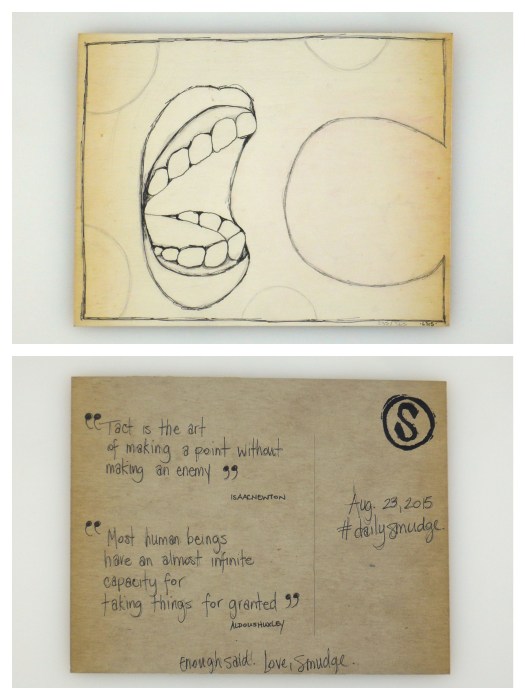 ❝ Tact is the art
of making a point without
making an enemy ❞
ISAAC NEWTON
❝ Most human beings
have an almost infinite
capacity for
taking things for granted ❞
ALDOUS HUXLEY
Enough said! Love, Smudge.
S
Aug. 23, 2015
#dailysmudge